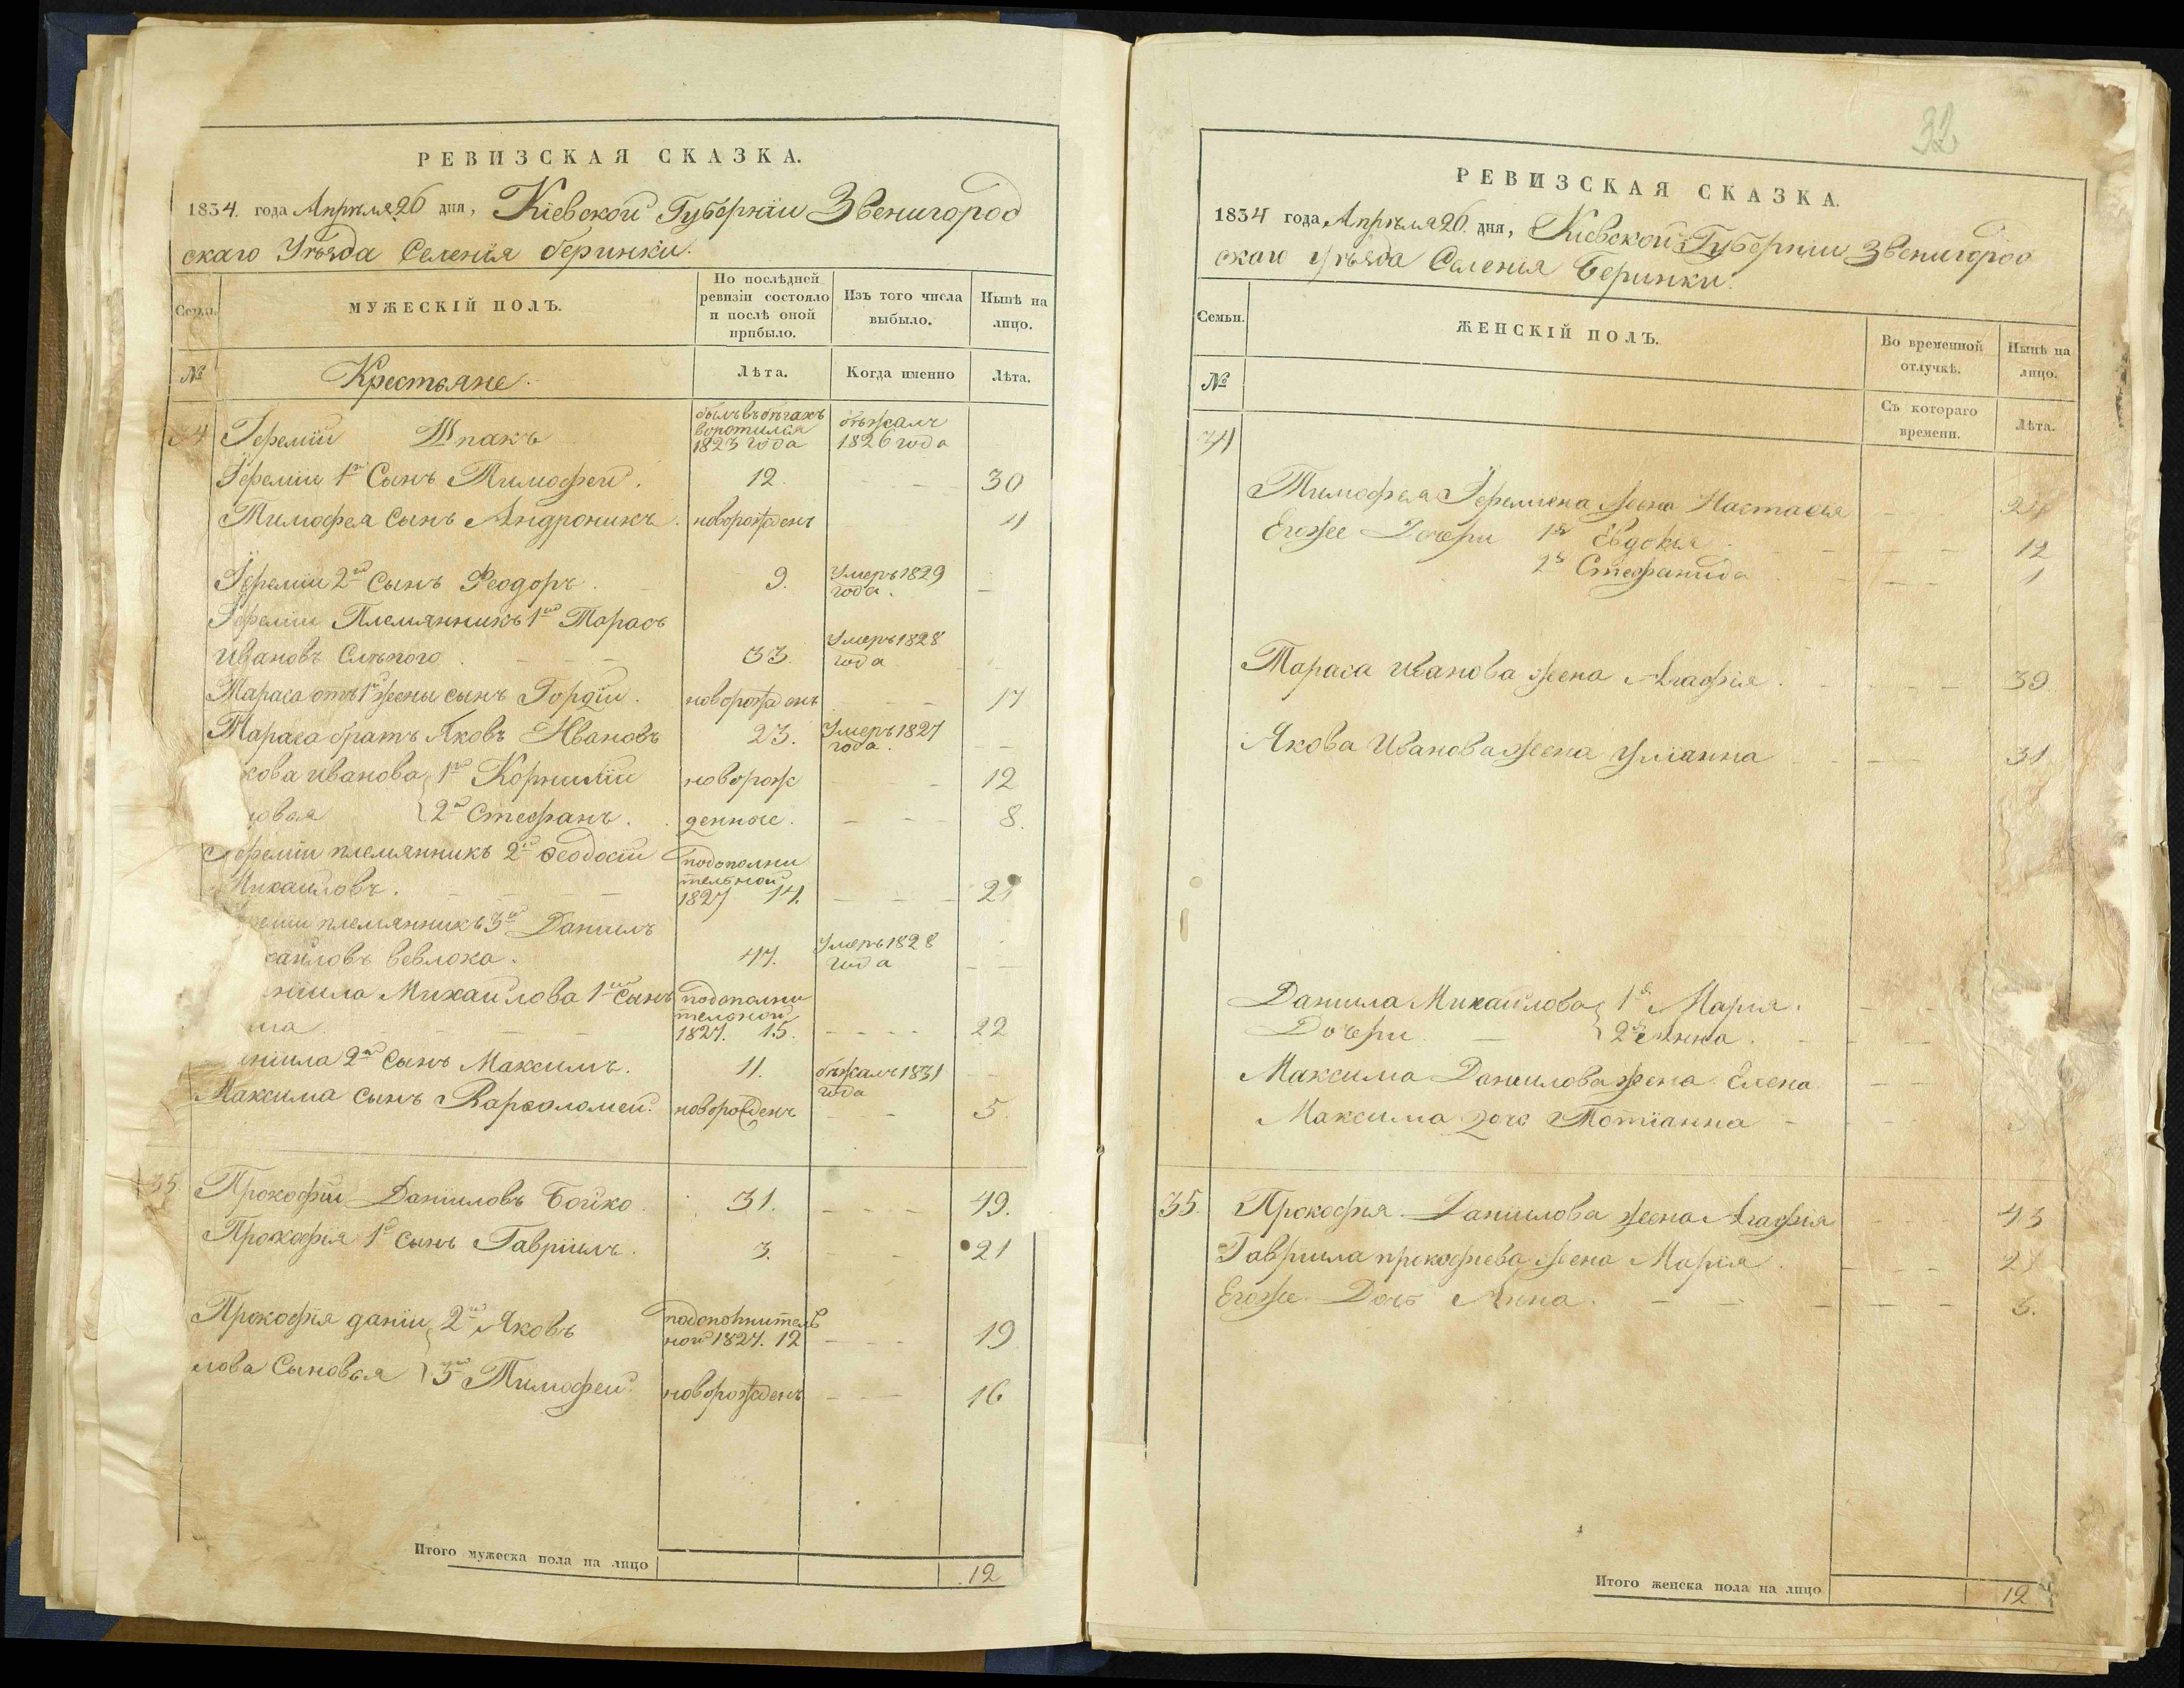 РЕВИЗСКАЯ СКАЗКА.
1834. года Апрѣля 26 дня, Кіевской Губерніи Звенигород
скаго Уѣзда Селенія беринки.
Семьи.
МУЖЕСКІЙ ПОЛЪ.
По послѣдней ревизіи состояло и послѣ оной прибыло.
Изъ того числа выбыло.
Нынѣ на лицо.
№
Крестьяне.
Лѣта.
Когда именно
Лѣта.
34 Іеремій Шпакъ былъ въ бѣгахъ воротился 1823 года бѣжалъ 1826 года
Іереміи 1й Сынъ Тимофей. 12. - - - 30
Тимофея Сынъ Андроникъ. новорожденъ 4
Іереміи 2й сынъ Феодоръ. 9. Умеръ 1829 года. -
Іереміи Племянникъ 1й Тарасъ
Ивановъ Слѣпого. 33. Умеръ 1828 года
Тараса отъ 1й жены сынъ Гордій. новорожденъ - - - 17
Тараса братъ Яковъ Ивановъ 23. Умеръ 1827 года. - -
кова иванова 1й Корнилій новорож - - - 12
новья 2й Стефанъ. денные. - - - 8.
Іереміи племянникъ 2й Феодосій
Михайловъ. подополни тельной 1827 14. - - - 21
реміи племянникъ 3й Данилъ
хайловъ Вевлока. 47. Умеръ 1828 года - -
ніила Михайлова 1й сынъ подополни тельной
ма. 1827. 15. - - - - 22
ніила 2й сынъ Максимъ. 11. бѣжалъ 1831 года
Максима сынъ Варфоломей. новорожденъ - - 5.
35. Прокофій Даніиловъ Бойко. 31. - - - 49.
Прокофія 1й сынъ Гавріилъ. 3. - - 21
Прокофія даніи 2й Яковъ подополнитель ной 1827. 12 - - - 19
лова Сыновья 3й Тимофей. новорожденъ - - - 16
Итого мужеска пола на лицо 12
32
РЕВИЗСКАЯ СКАЗКА.
1834 года Апрѣля 26. дня, Кіевской Губерніи Звенигород
скаго уѣзда Селенія Беринки.
Семьи.
ЖЕНСКІЙ ПОЛЪ.
Во временной отлучкѣ.
Нынѣ на лицо.
№
Съ котораго времени.
Лѣта.
34
Тимофея Іеремиена жена Настасья - -
Егожъе Дочери 1я Евдокія - - - 12
2я Стефанида - - - 1
Тараса Иванова жена Агафія. - - - - 39
Якова Иванова жена Уліанна - - - - 31
Данила Михайлова 1я Марія. - -
Дочери - 2я Анна. - - -
Максима Данилова жена Елена - -
Максима дочь Тотіанна - - -
35. Прокофія Даніилова жена Агафія - - 43
Гавріила прокофіева жена Марія. - - -
Егожъе Дочь Анна. - - - - - 3.
Итого женска пола на лицо 12